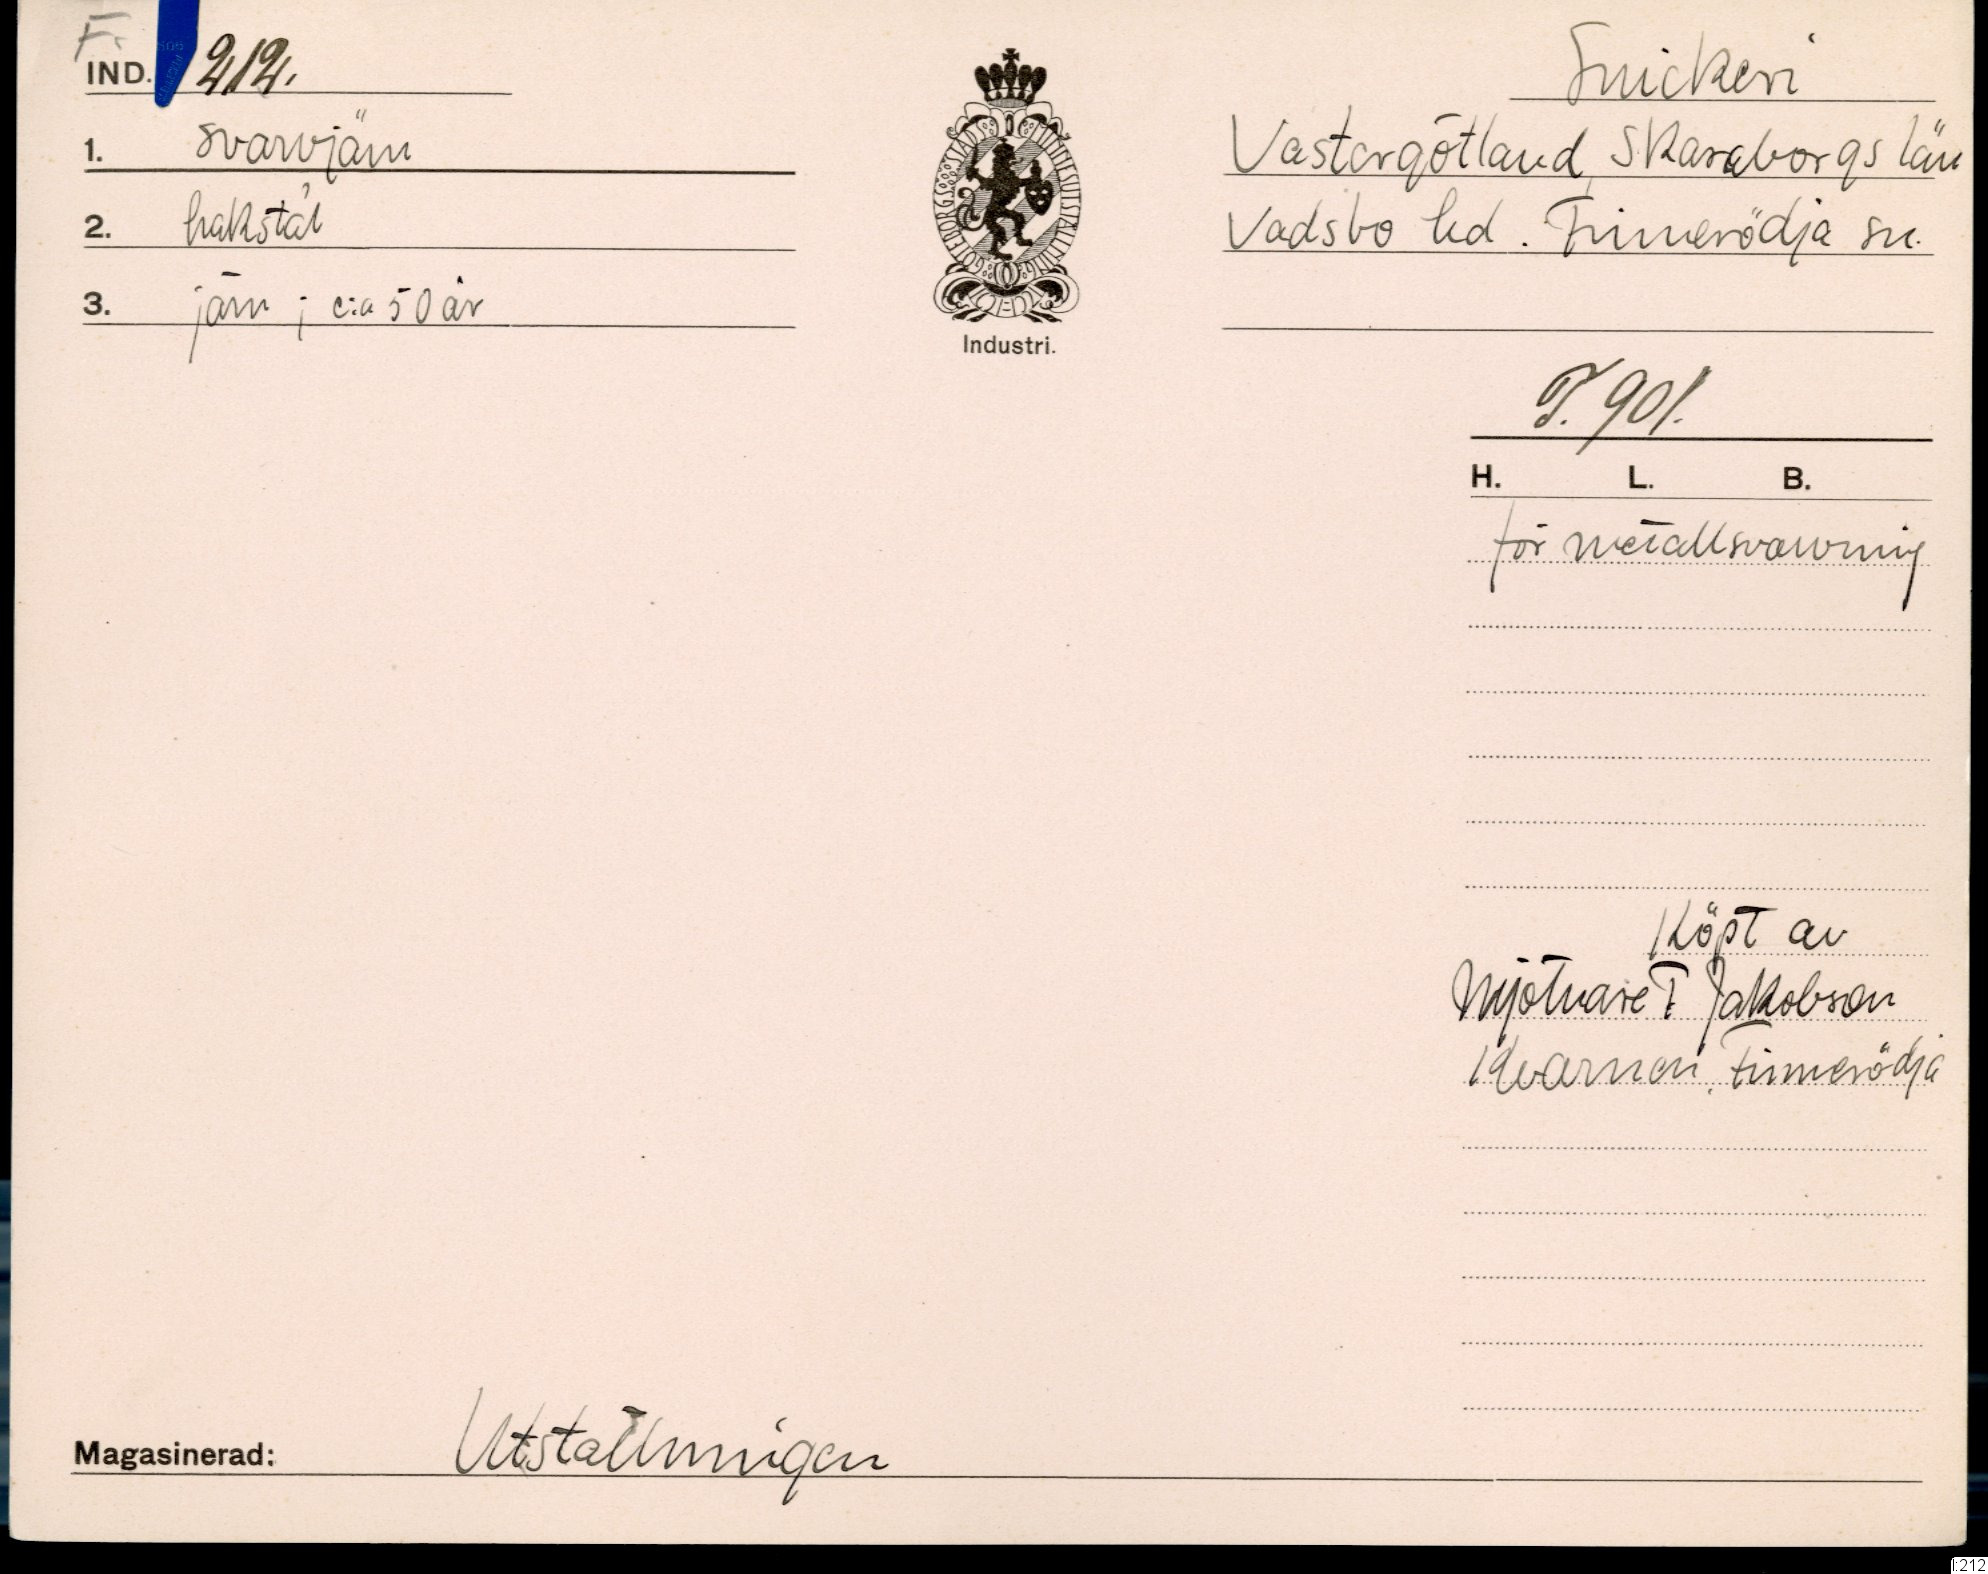 Fr
IND. 212.
1. svarvjärn
2. hakstål
3. järn ; c:a 50 år
GÖTEBORGS STADS MINNESUTSTÄLLNING
Industri.
Snickeri
Västergötland, Skaraborgs län
Vadsbo hd. Finnerödja sn.
T. 901.
H. L. B.
för metallsvarvning
Köpt av
Mjölnare T Jakobson
Kvarnen, Finnerödja
Magasinerad: Utställningen
I:212